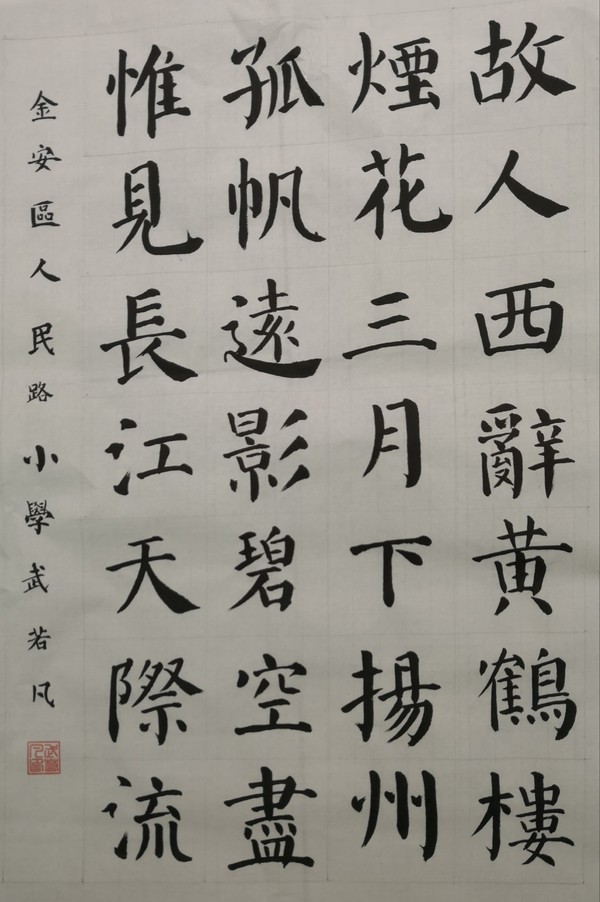 故人西辭黄鶴樓
煙花三月下揚州
孤帆遠影碧空盡
惟見長江天際流
金安區人民路小學武若凡